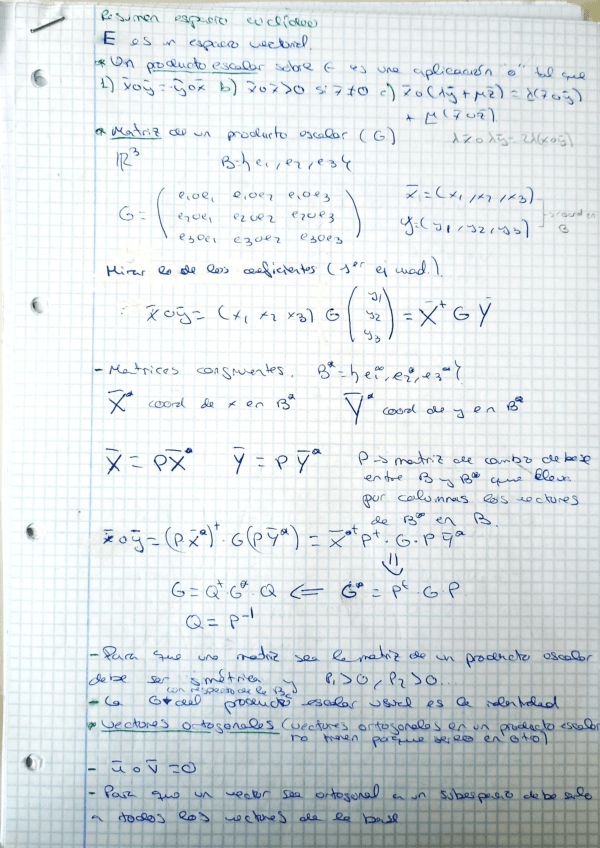 Resumen espacio euclídeo
E es un espacio vectorial.
* Un producto escalar sobre E es una aplicación "o" tal que
1) x̄oȳ=ȳox̄ b) x̄ox̄>0 si x̄≠0 c) x̄o(λȳ+μz̄)=λ(x̄oȳ)
+ μ(x̄oz̄)
* Matriz de un producto escalar (G)
λx̄oλȳ=2λ(x̄oȳ)
ℝ³ B={e1,e2,e3}
G= ( e1oe1 e1oe2 e1oe3
e2oe1 e2oe2 e2oe3
e3oe1 e3oe2 e3oe3 )
x̄=(x1,x2,x3)
ȳ=(y1,y2,y3)
B
Mirar lo de los coeficientes (1er ej cuad.).
x̄oȳ=(x1 x2 x3) G (y1 y2 y3) = X̄ᵗ G Ȳ
- Matrices congruentes. B*={e1*,e2*,e3*}
X̄* coord de x en B* Ȳ* coord de y en B*
X̄ = PX̄* Ȳ = PȲ* P→matriz de cambio de base
entre B y B* que lleva
por columnas los vectores
de B* en B.
x̄oȳ=(PX̄*)ᵗ·G(PȲ*) = X̄*ᵗPᵗ·G·PȲ*
⇓
G=Qᵗ·G*·Q ⇐ G*=Pᵗ·GP
Q=P⁻¹
- Para que una matriz sea la matriz de un producto escalar
debe ser simétrica y P1>0, P2>0...
con respecto de la Bc
- La G del producto escalar usual es la identidad
* Vectores ortogonales (vectores ortogonales en un producto escalar
no tienen porque serlo en otro)
- ūov̄=0
- Para que un vector sea ortogonal a un subespacio debe serlo
a todos los vectores de la base